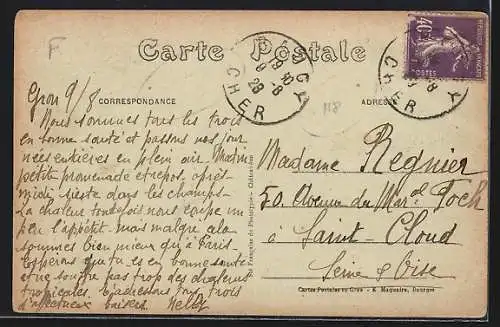 F
Carte Postale
CORRESPONDANCE
ADRESSE
UGY
CHER
9-8
28
40c
POSTES
118
Gron 9/8
Nous sommes tous les trois
en bonne santé et passons nos jour
nées entières en plein air. Matin
petite promenade et repos, après-
midi sieste dans les champs-
La chaleur toutefois nous coupe un
peu l'appétit mais malgré cela
sommes bien mieux qu'à Paris.
Espérons que tu es en bonne santé
et ne souffre pas trop des chaleurs
tropicales. t'adressons tous trois
d'affectueux baisers. Nelly
Madame Regnier
50. Avenue du Mar.al Foch
à Saint-Cloud
Seine & Oise
Française de Phototypie - Châteauroux
Cartes Postales en Gros - E. Maquaire, Bourges